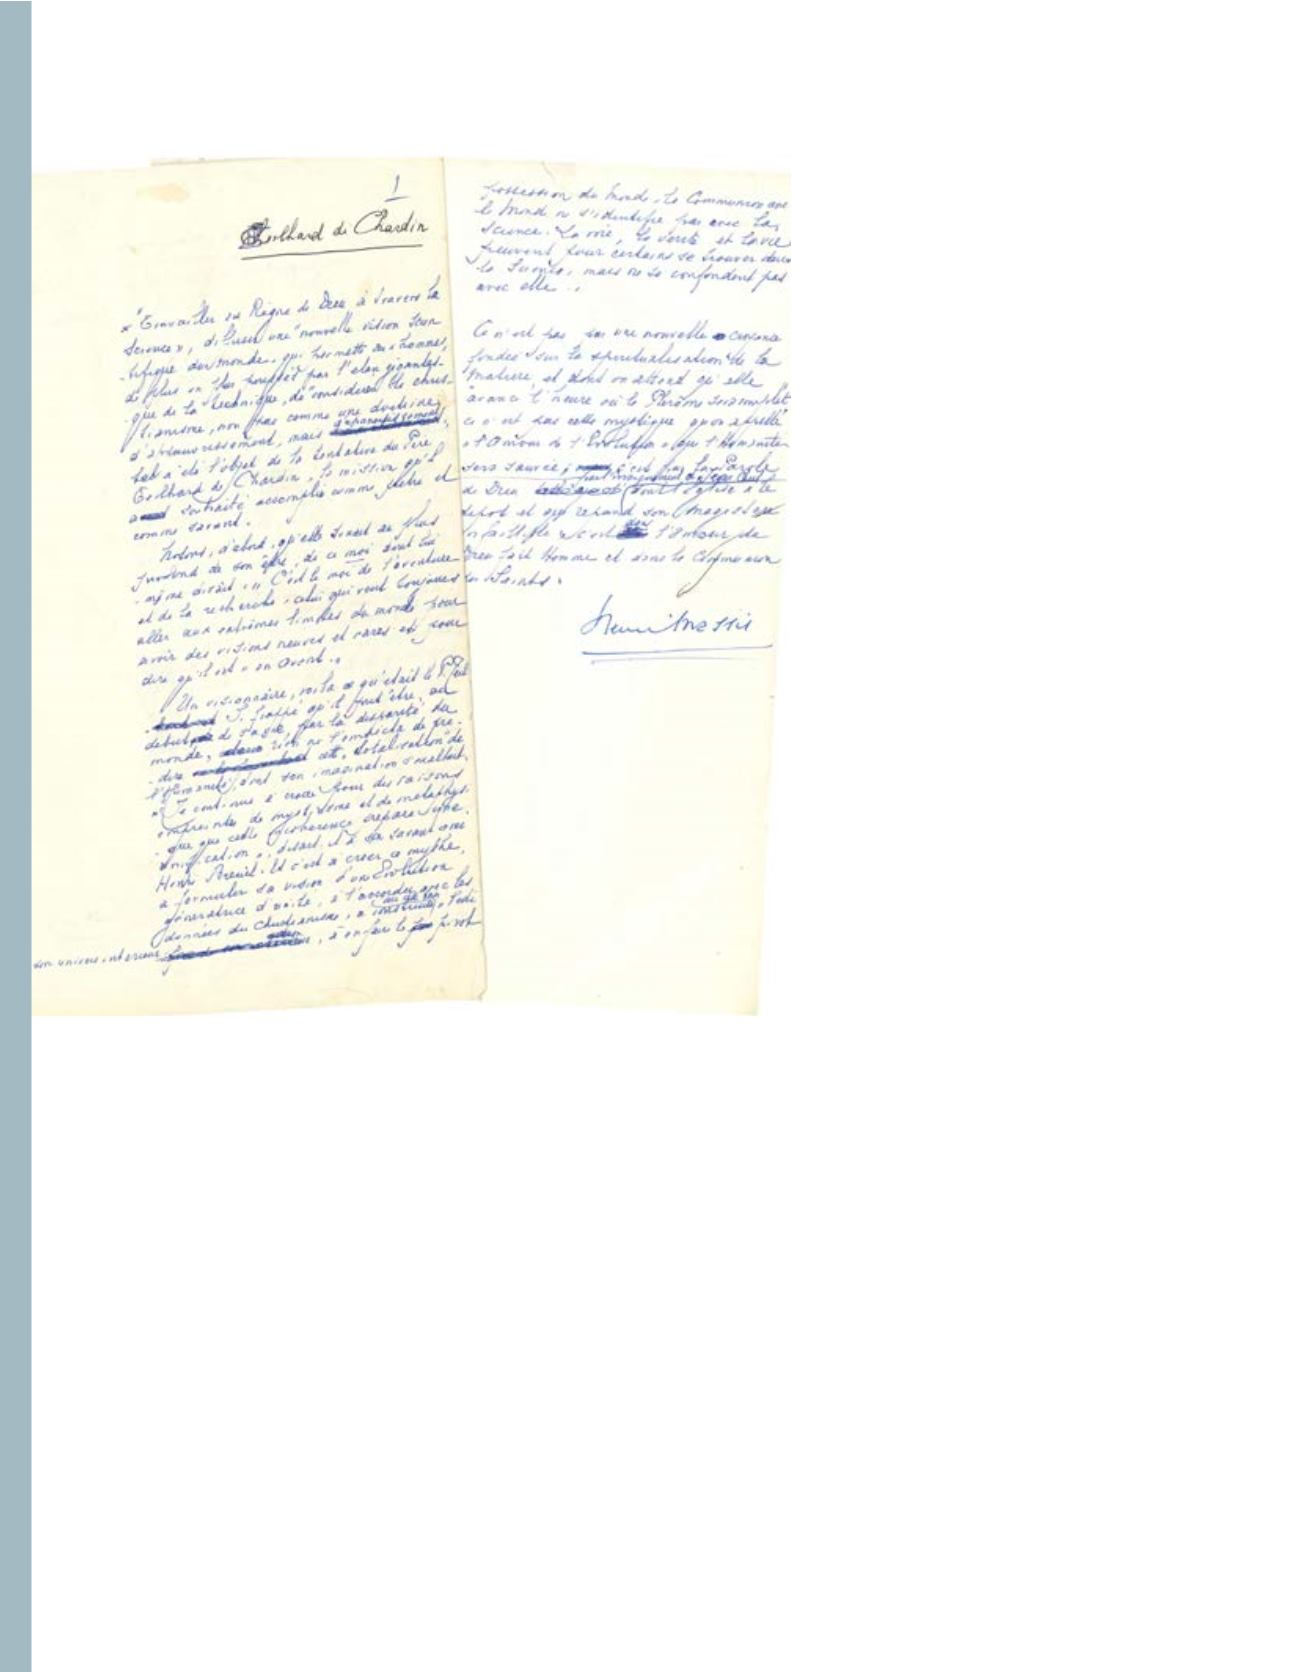 1
Teilhard de Chardin
« Travailler au Règne de Dieu à travers la
Science », diffuser une "nouvelle vision scien
-tifique du monde, qui permette aux hommes,
de plus en plus par l'élan gigantes-
que de la technique, de "considérer le chris-
tianisme, non pas comme une doctrine
d'appauvrissement, mais
tel a été l'objet de la tentative du Père
Teilhard de Chardin, la mission qu'il
a souhaité accomplir comme prêtre et
comme savant.
Notons, d'abord, qu'elle tenait au plus
profond de son être, de ce moi dont lui
-même disait : « C'est le moi de l'aventure
et de la recherche, celui qui veut toujours
aller aux extrêmes limites du monde pour
avoir des visions neuves et rares et pour
dire qu'il est « en avant. »
Un visionnaire, voilà ce qu'était le P. Teil
hard. Si frappé qu'il fut être, au
début de sa vie, par la disparité du
monde, rien ne l'empêcha de pré-
-dire cette "totalisation" de
l'Humanité, dont son imagination s'exaltait.
« Je continue à croire pour des raisons
empreintes de mysticisme et de métaphysi-
-que que cette incohérence prépare une
unification », disait-il à ce savant ami
Henri Breuil. Et c'est à créer ce mythe,
à formuler sa vision d'une Evolution
génératrice d'unité, à l'accorder avec les
données du Christianisme, à
son univers intérieur, à en faire le pivot
possession du monde. La Communion avec
le Monde ne s'identifie pas avec la
science. La voie, la vérité et la vie
peuvent pour certains se trouver dans
la Science, mais ne se confondent pas
avec elle.
Ce n'est pas sur une nouvelle croyance
fondée "sur la spiritualisation de la
matière", et dont on attend qu'elle
"avance l'heure où le Plérôme sera complet"
ce n'est pas cette mystique qu'on appelle
« l'Amour de l'Evolution » que l'Humanité
sera sauvée ; c'est par la Parole
de Dieu dont l'Eglise a le
dépôt et qui répand son magistère
infaillible, c'est dans l'amour de
Dieu fait Homme et dans la Communion
des Saints.
Henri Massis